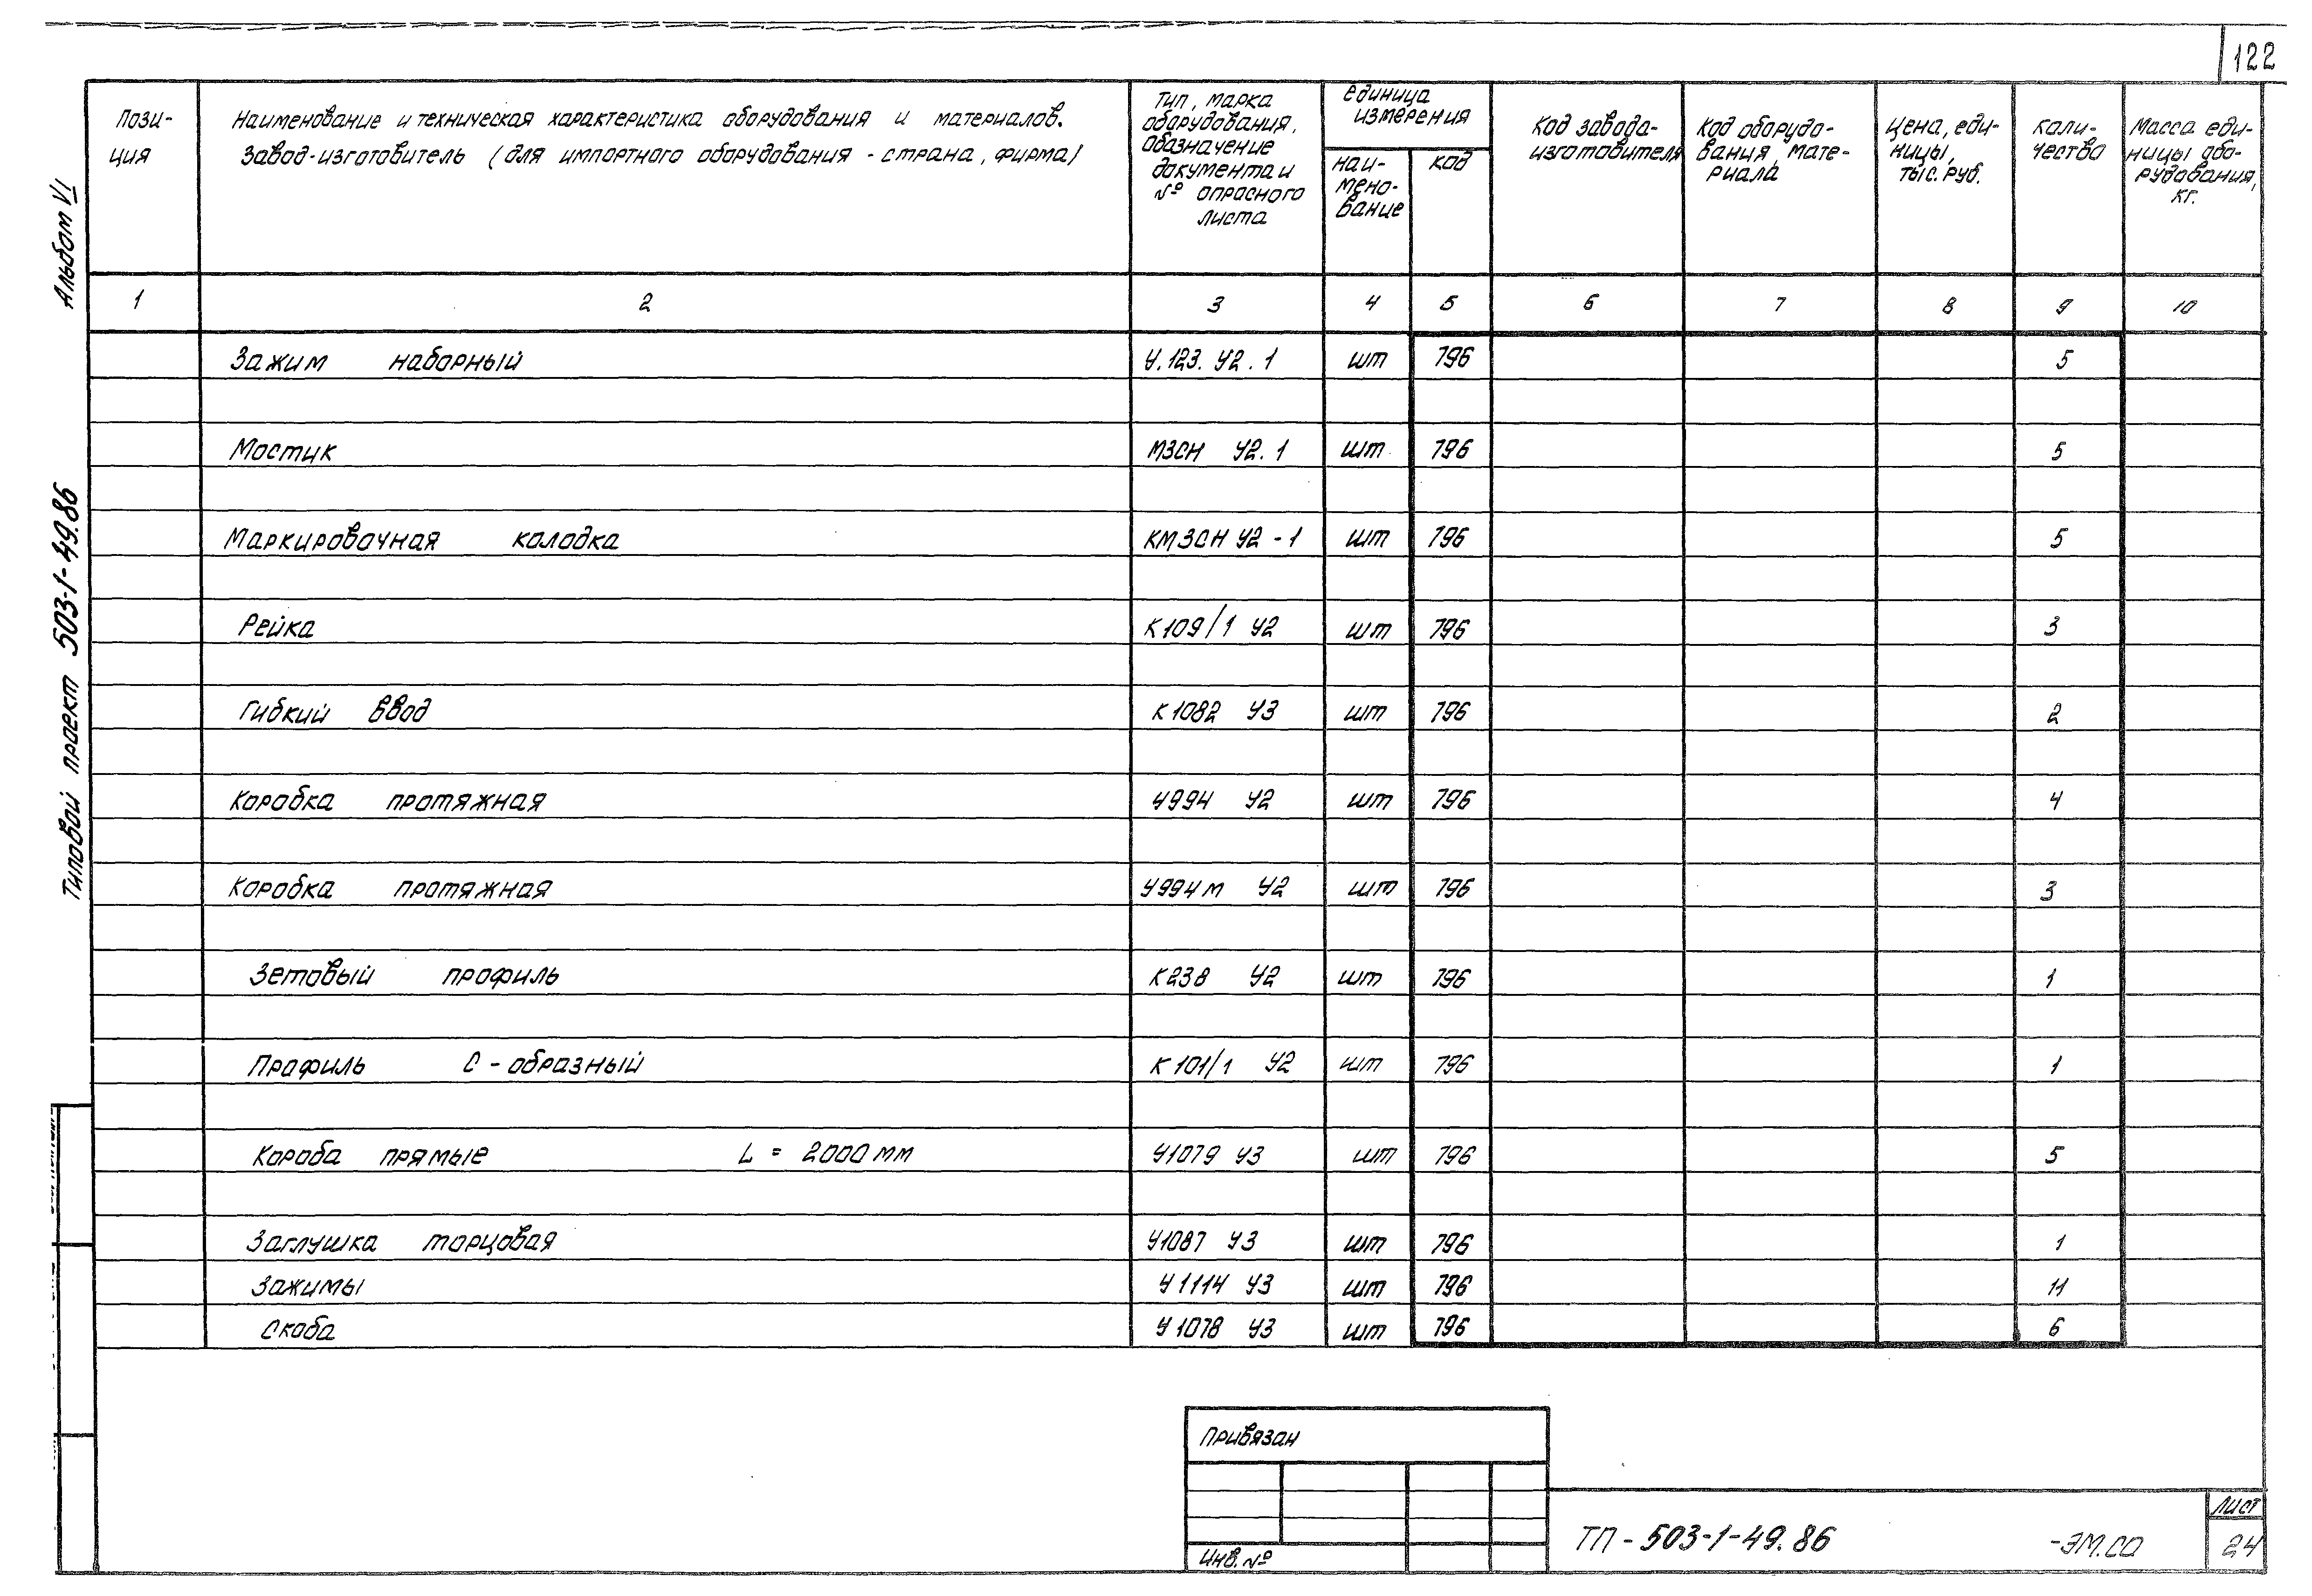 122
Альбом VI
Типовой проект 503-1-49.86
Пози-
ция
Наименование и техническая характеристика оборудования и материалов.
Завод-изготовитель (для импортного оборудования - страна, фирма)
Тип, марка
оборудования,
обозначение
документа и
№ опросного
листа
единица
измерения
наи-
мено-
вание
код
Код завода-
изготовителя
Код оборудо-
вания, мате-
риала
Цена, еди-
ницы,
тыс. руб.
коли-
чество
Масса еди-
ницы обо-
рудования,
кг.
1 2 3 4 5 6 7 8 9 10
Зажим наборный У.123. У2.1 шт 796 5
Мостик МЗСН У2.1 шт 796 5
Маркировочная колодка КМЗСН У2-1 шт 796 5
Рейка К109/1 У2 шт 796 3
Гибкий ввод К1082 У3 шт 796 2
Коробка протяжная У994 У2 шт 796 4
Коробка протяжная У994м У2 шт 796 3
Зетовый профиль К238 У2 шт 796 1
Профиль С-образный К101/1 У2 шт 796 1
Короба прямые L = 2000 мм У1079 У3 шт 796 5
Заглушка торцовая У1087 У3 шт 796 1
Зажимы У1114 У3 шт 796 11
Скоба У1078 У3 шт 796 6
Привязан
Инв. №
ТП-503-1-49.86 -ЭМ.СО
Лист
24